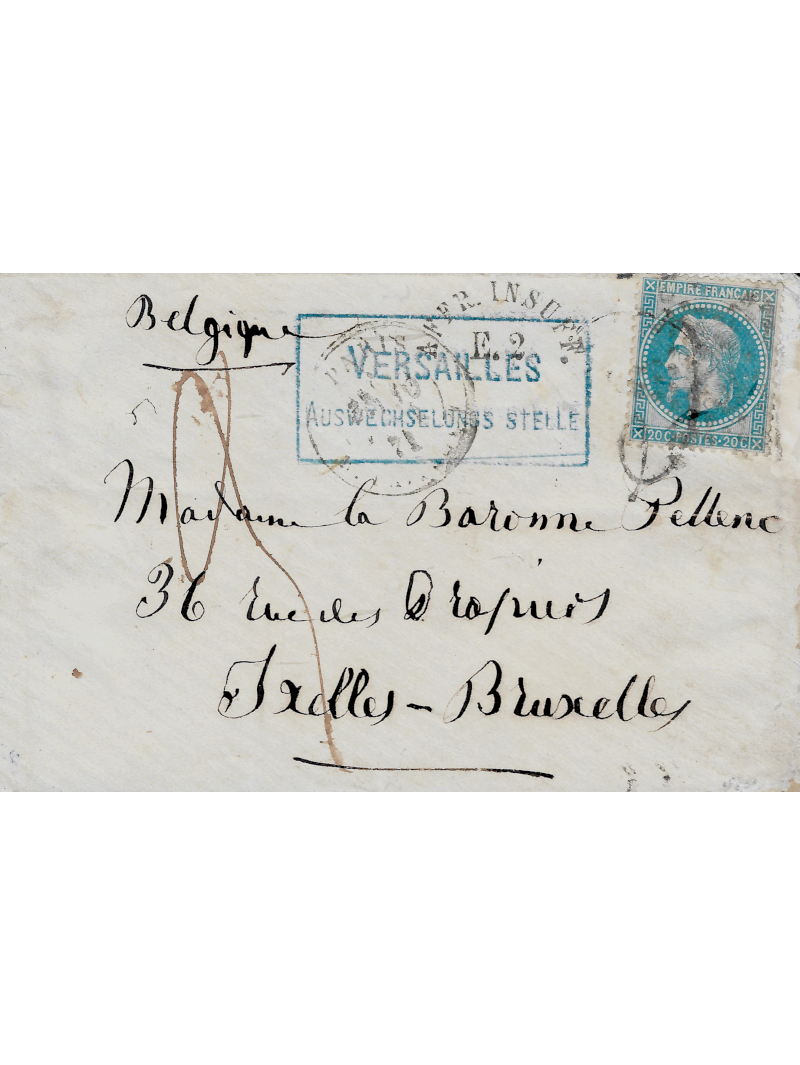 Belgique
AFFR. INSUFF.
E. 2
EMPIRE FRANÇAIS
20 C · POSTES · 20 C
PARIS
71
VERSAILLES
AUSWECHSELUNGS STELLE
Madame la Baronne Pellenc
36 rue des Drapiers
Ixelles - Bruxelles